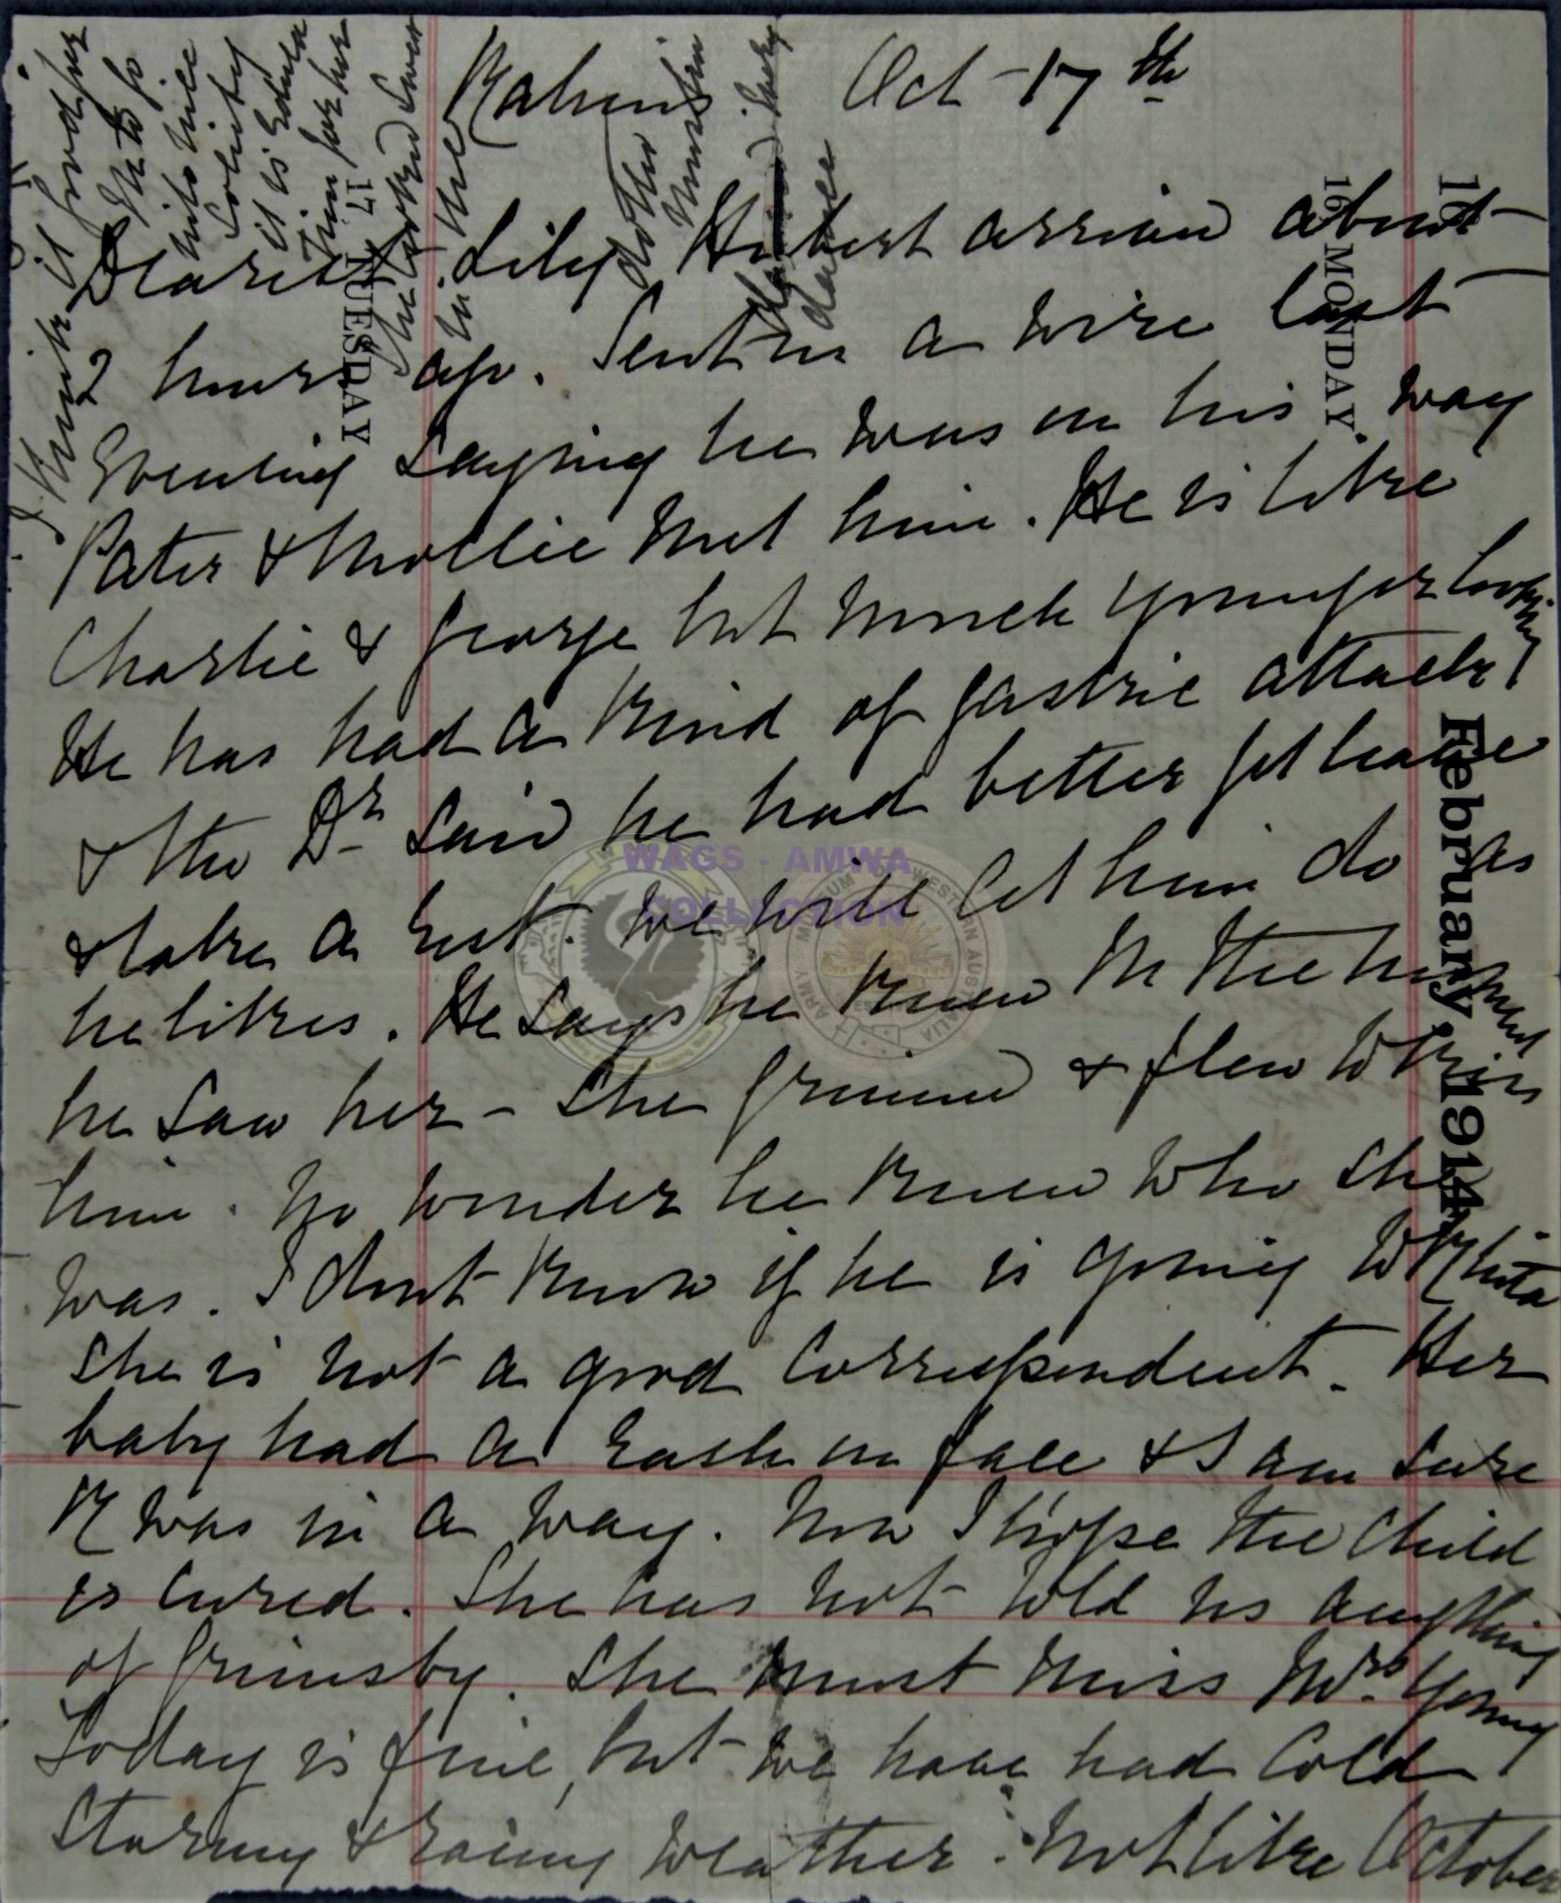 Oct - 17th
Dearest Lily Hubert arrived about
2 hours ago. Sent us a wire last
Evening saying he was on his way
Pater & Mollie met him. He is like
Charlie & George but much younger looking
He has had a kind of gastric attack
& the Dr said he had better get leave
& take a rest. We will let him do as
he likes. He says he knew M the moment
he saw her - She grinned & flew to kiss
him. No wonder he knew who she
was. I dont know if he is going to Rhita
She is not a good correspondent. Her
baby had a rash on face & I am sure
R was in a way. Now I hope the child
is cured. She has not told us anything
of Grimsby. She must miss Mrs Young
Today is fine, but we have had cold
Stormy & rainy weather. Not like October
16 MONDAY
17 TUESDAY
February, 1914.
WAGS - AMWA
COLLECTION